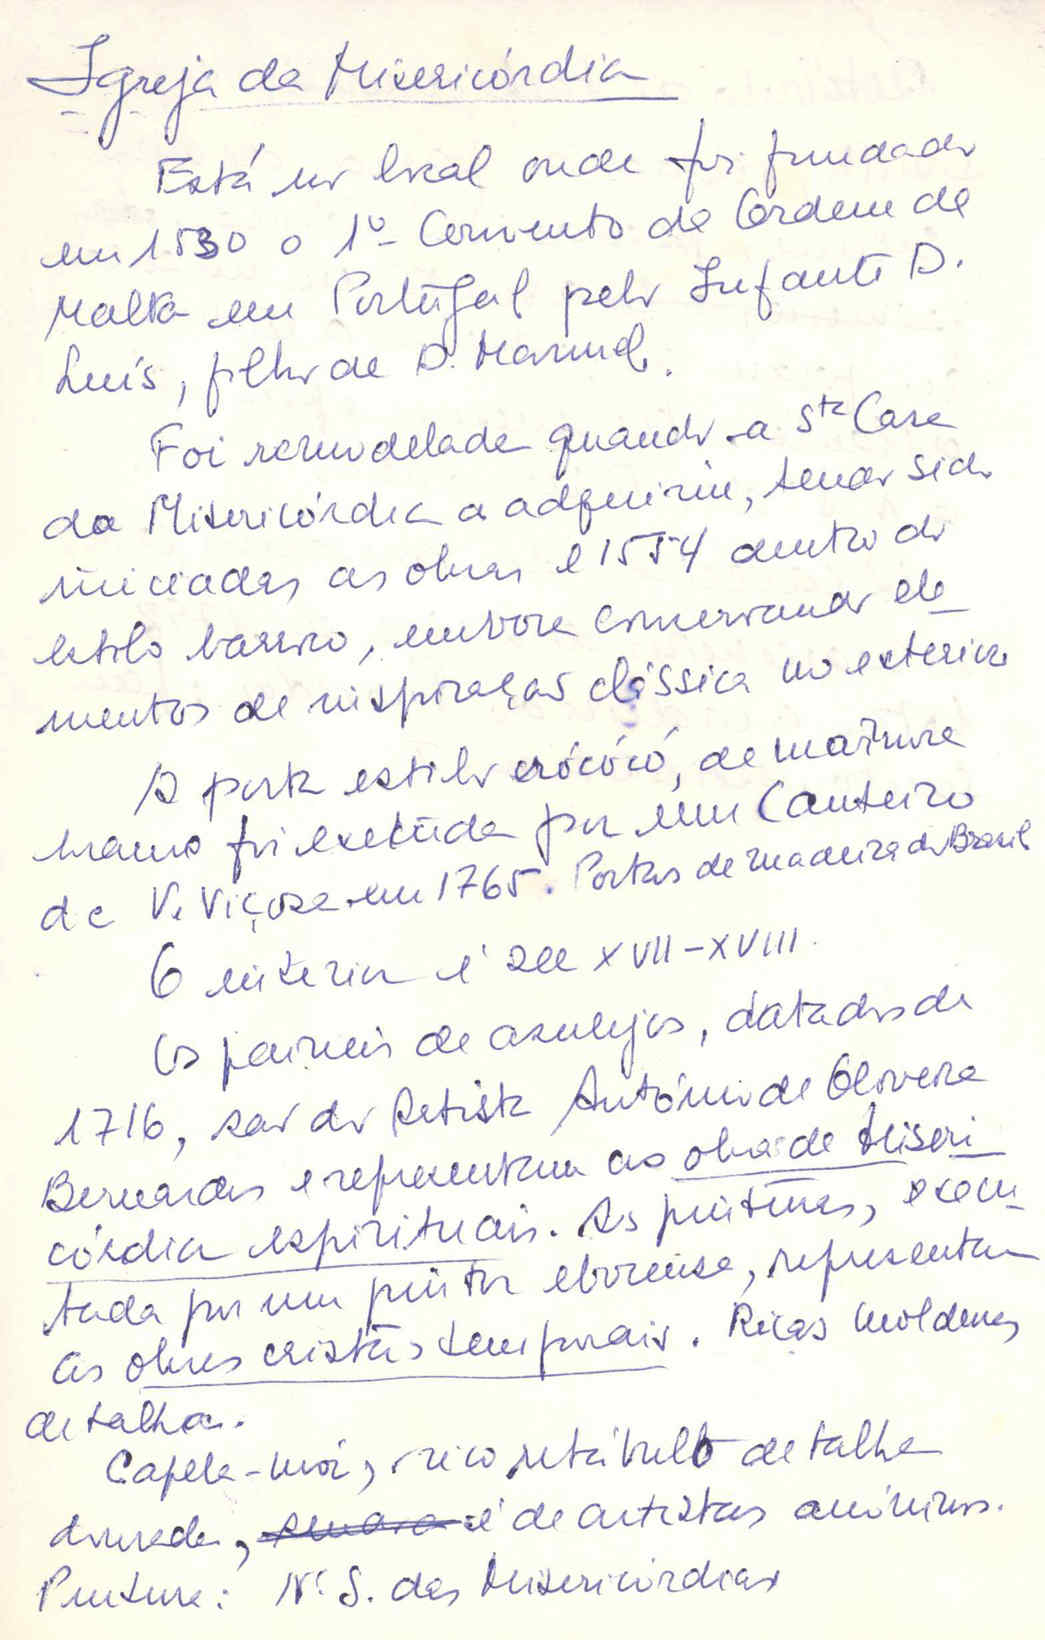 Igreja da Misericórdia
Está no local onde foi fundado
em 1530 o 1º Convento da Ordem de
Malta em Portugal pelo Infante D.
Luís, filho de D. Manuel.
Foi remodelada quando a Stª Casa
da Misericórdia a adquiriu, tendo sido
iniciadas as obras e 1554 dentro do
estilo barroco, embora conservando ele
mentos de inspiração clássica no exterior
A porta estilo rócócó, de mármore
branco foi executada por um Canteiro
de V. Viçosa em 1765. Portas de madeira do Brasil
O interior é sec XVII-XVIII.
Os paineis de azulejos, datados de
1716, são do Artista António de Oliveira
Bernardes e representam as obras de Miseri
córdia espirituais. As pinturas, execu-
tada por um pintor eborense, representam
as obras cristãs temporais. Ricas molduras
de talha.
Capela-mór, rico retábulo de talha
dourada, é de artistas anónimos.
Pintura: Nª S. das Misericórdias